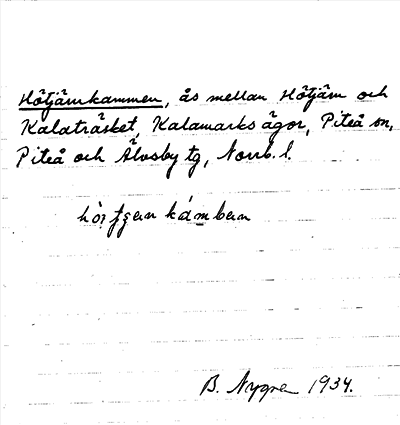 Hötjärnkammen, ås mellan Hötjärn och
Kalaträsket, Kalamarks ägor, Piteå sn,
Piteå och Älvsby tg, Norrb. l.
B. Nygren 1934.